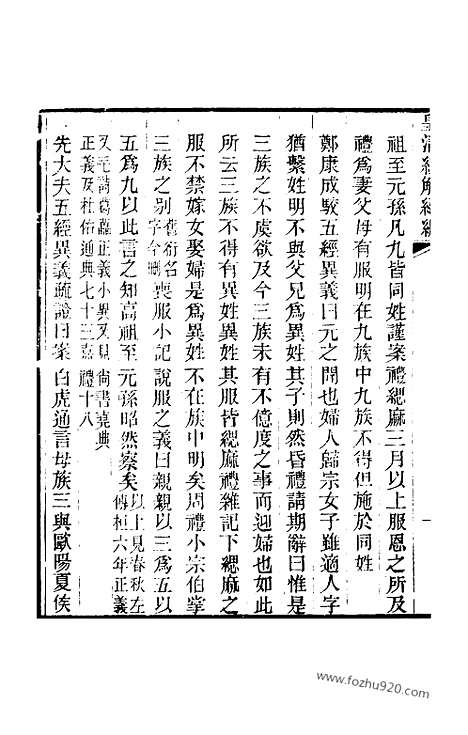 皇清經解續編
祖至元孫凡九皆同姓謹案禮緦麻三月以上服恩之所及
禮爲妻父母有服明在九族中九族不得但施於同姓
鄭康成駮五經異義曰元之聞也婦人歸宗女子雖適人字
猶繫姓明不與父兄爲異姓其子則然昏禮請期辭曰惟是
三族之不虞欲及今三族未有不億度之事而迎婦也如此
所云三族不得有異姓異姓其服皆緦麻禮雜記下緦麻之
服不禁嫁女娶婦是爲異姓不在族中明矣周禮小宗伯掌
三族之别舊衍名字今刪喪服小記說服之義曰親親以三爲五以
五爲九以此言之知高祖至元孫昭然察矣以上見春秋左傳桓六年正義
又毛詩葛藟正義小異又見尚書堯典
正義及杜佑通典七十三嘉禮十八
先大夫五經異義疏證曰案白虎通言母族三與歐陽夏侯
www.fozhu920.com